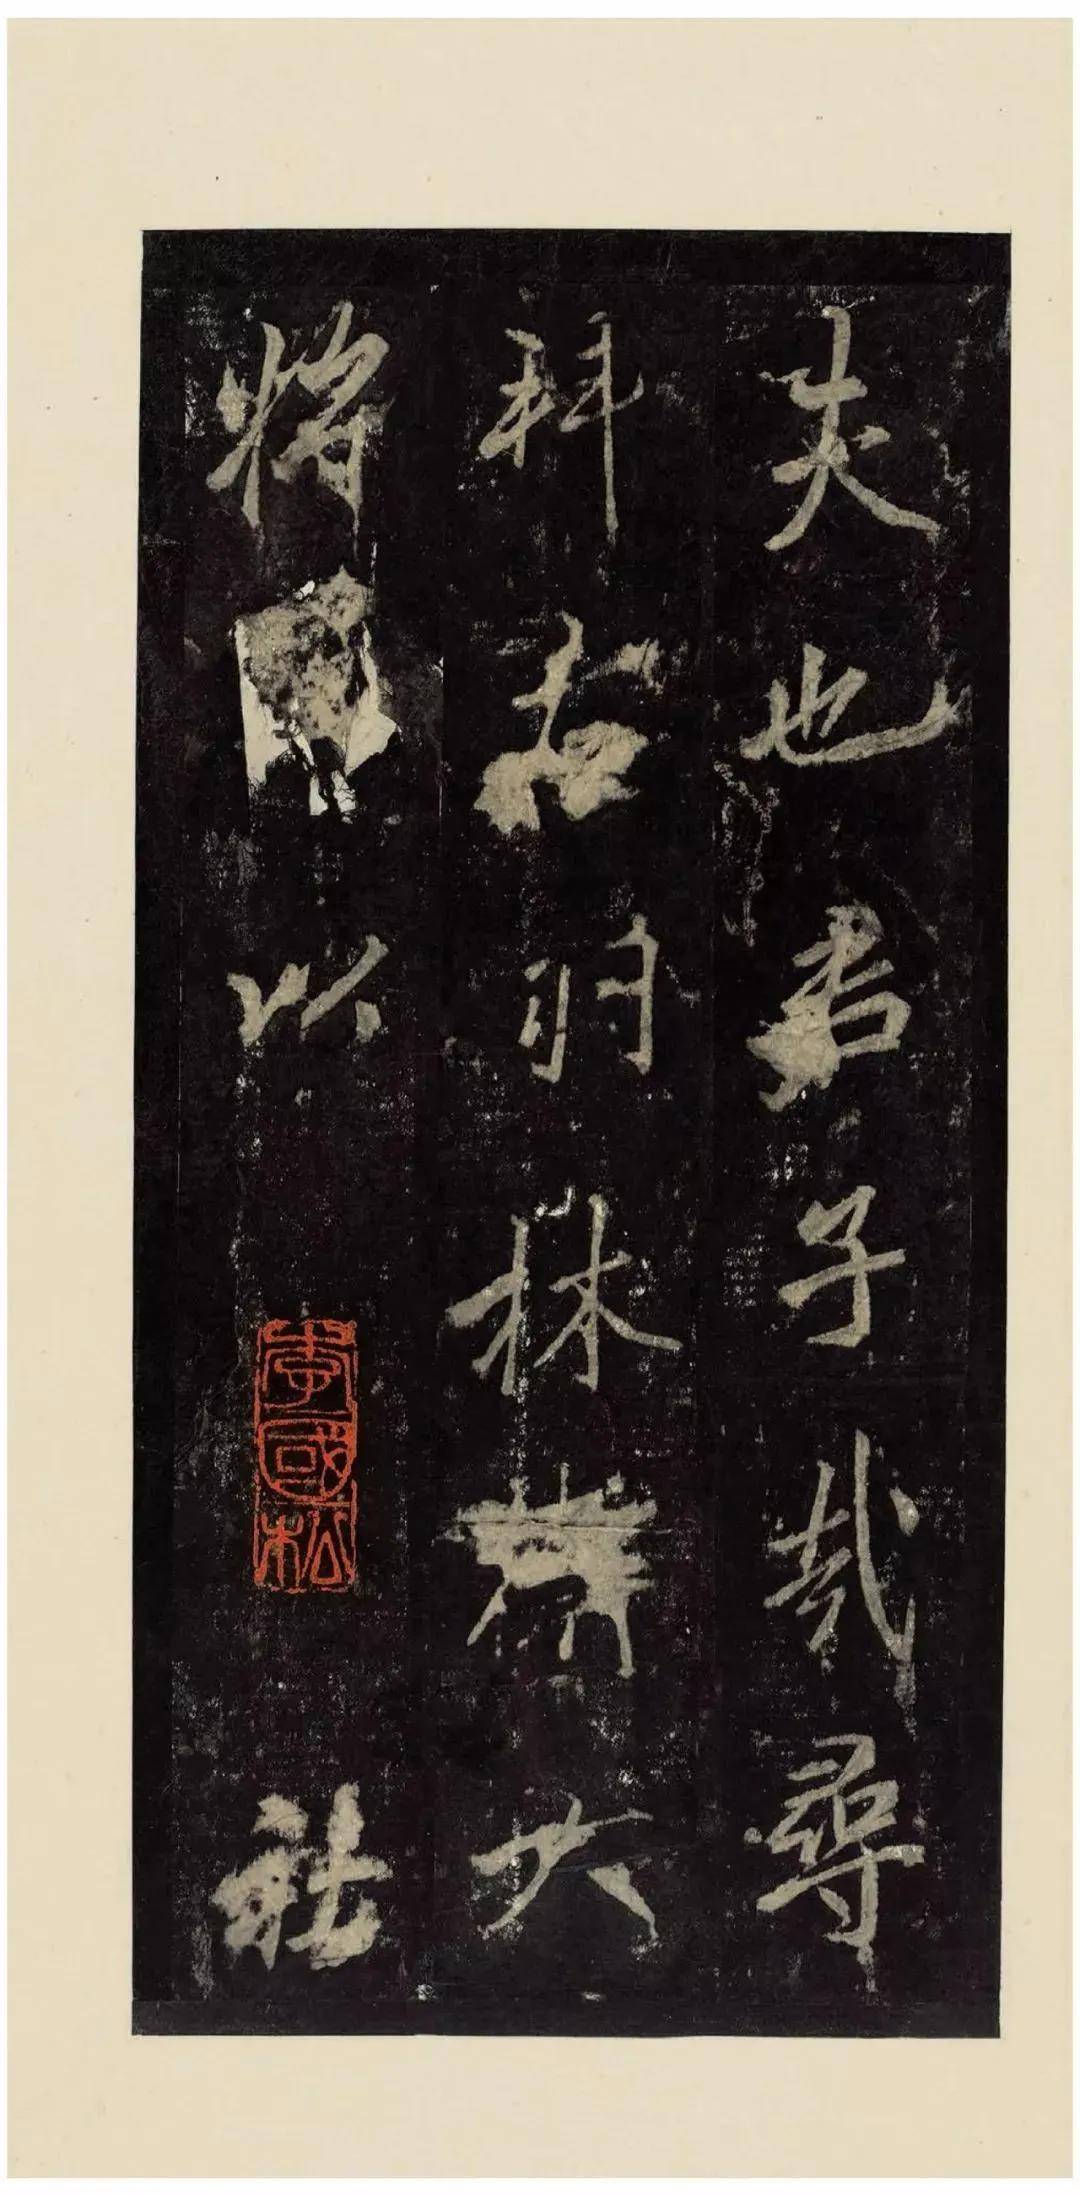 夫也君子哉尋
拜右羽林衛大
將以 社
李國松